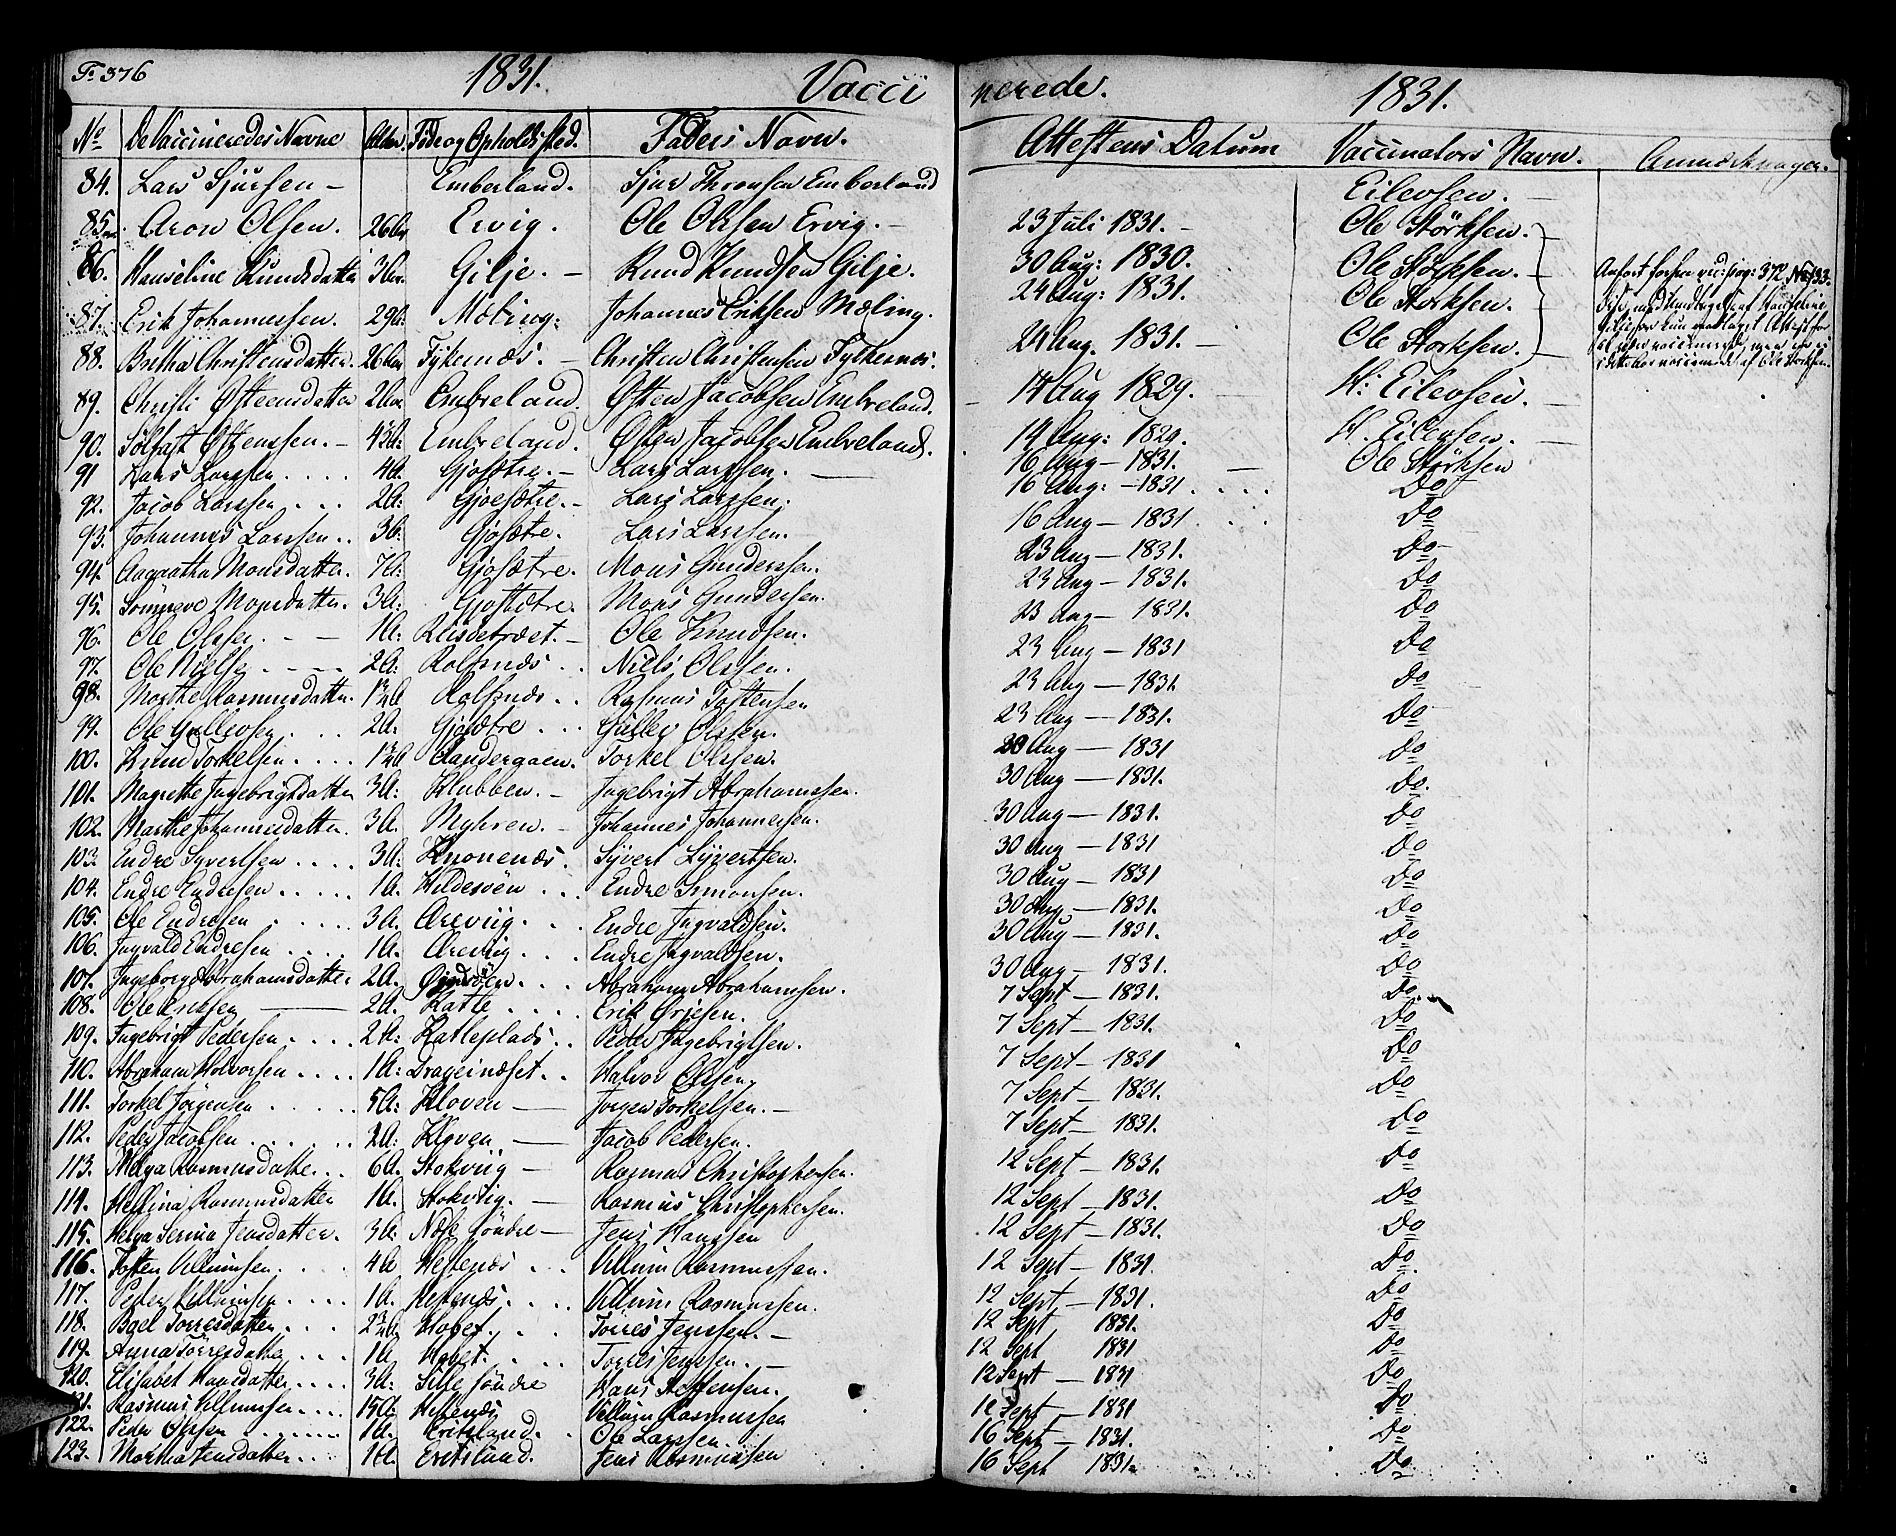 F. 376 1831. Vacci nerede. 1831.
No De Vaccineredes Navne Alder. Föde og Opholdssted. Faders Navn. Attestens Datum Vaccinators Navn. Anmærkninger.
84. Lars Sjursen — Emberland. Sjur Thronsen Emberland Eilevsen. —
85. Aron Olsen. 26 Ervig. Ole Olsen Ervig. — 23 Juli 1831. — Ole Störksen.
86. Hanseline Knudsdatter 3 Gilje. — Knud Knudsen Gilje. 30 Aug: 1830. Ole Störksen. — Anfört forhen ved pag: 372 No 133.
87. Erik Johannessen. 29 Mæling. Johannes Eriksen Mæling. 24 Aug: 1831. Ole Störksen.
88. Brithe Christensdatter. 26 Fykenæs. — Christen Christensen Fykenæs. 24 Aug. 1831. — Ole Störksen. —
89. Christi Ostensdatter 2 Embreland. Østen Jacobsen Embreland. 14 Aug 1829. H: Eilevsen. —
90. Solfast Ostensen. — 4 Embreland. Østen Jacobsen Embreland. 14 Aug: 1829. H. Eilevsen. —
91 Lars Larssen . . . . 4A. Gjosætre. — Lars Larssen. 16 Aug — 1831. — Ole Störksen
92. Jacob Larssen . . . 2A: Gjosætre. — Lars Larssen. 16 Aug: — 1831 . . . . Do
93. Johannes Larssen . . 3A. Gjosætre. Lars Larssen. 16 Aug — 1831 . . . Do
94. Aagaatha Monsdatter. 7A: Gjosætre. Mons Gunderssen. 23 Aug — 1831. Do
95. Sönneve Monsdatter. 3A: Gjosætre. Mons Gundersen. 23 Aug — 1831. Do
96. Ole Olssen. — 1A: Ole Knudsen. 23 Aug — 1831. Do
97. Ole Nielsen 2A: Rolfsnæs . . Niels Olssen. 23 Aug — 1831 Do
98. Marthe Rasmusdatter. 1½A Rolfsnæs . . Rasmus Tostensen 23 Aug — 1831. Do
99. Ole Gullevsen . . . 2A. Gjosætre . . . Gullev Olssen. 23 Aug — 1831. Do
100. Knud Torkelsen . . . . 1½A Torkel Olssen. 20 Aug — 1831 Do
101. Magrethe Ingebrigtsdatter 3A: Klubben. — Ingebrigt Abrahamssen. 30 Aug — 1831. Do.
102. Marthe Johannesdatter. 3A. Myhren. — Johannes Johannesen. 30 Aug — 1831. Do
103. Endre Syvertsen . . . . 3A: Sÿvert Sÿvertsen. 30 Aug — 1831 Do
104. Endre Endresen . . . . 1A: Hildesöen . . . Endre Simonsen. 30 Aug — 1831 Do
105. Ole Endresen . . . . . 3A. Areviig . . . Endre Ingvaldsen. 30 Aug — 1831. Do
106. Ingvald Endresen . . . . 1A. Areviig . . . Endre Ingvaldsen. 30 Aug — 1831. Do
107. Ingeborg Abrahamsdatter 2A. . . . Abraham Abrahamssen. 30 Aug — 1831. Do
108. Ole Ericksen — 2A. Katle . . . . . Erik Ørjesen. 7 Sept — 1831. Do
109. Ingebrigt Pedersen . . . . 2A: Katleplads . . Peder Ingebrigtsen. 7 Sept — 1831. Do
110. Abraham Holversen . . . . 1A: Drageinæset . . Halvor Olssen. 7 Sept — 1831 Do
111. Torkel Jörgensen . . . . . 5A: Kloven — Jörgen Torkelsen. — 7 Sept — 1831 Do
112. Peder Jacobsen . . . . . . 2A: Kloven — Jacob Pedersen. 7 Sept — 1831. Do
113. Helga Rasmusdatter . . . 6A. Stokviig — Rasmus Christophersen. 12 Sept — 1831. Do
114. Hellina Rasmusdatter 1A. Stokviig. — Rasmus Christophersen. 12 Sept — 1831. Do
115. Helga Serina Jensdatter. 3A: Næse söndre — Jens Hanssen 12 Sept — 1831. Do
116. Tosten Villumsen . . . . 4A Hestenæs . . . Villum Rasmussen. 12 Sept — 1831. Do.
117. Peder Villumsen . . . . 1A. Hestenæs . . . . Villum Rasmussen. 12 Sept — 1831. Do
118. Boel Torresdatter . . . 2½A Hovet . . . Törres Jenssen. — 12 Sept 1831. Do
119. Anna Törresdatter . . . 1A Hovet. . . . Torres Jenssen. — 12 Sept 1831 Do
120. Elisabet Hansdatter . . . . 3A: söndre Hans Steffensen. 12 Sept — 1831 Do
121. Rasmus Villumsen . . . . 15A. Hestenæs Villum Rasmussen 12 Sept — 1831 Do
122. Peder Olssen . . . . . . 1A. Eritsland. Ole Larssen 16 Sept — 1831. Do
123. Martha Jensdatter . . . 1A. Eretsland. Jens Rasmussen 16 Sept 1831. Do